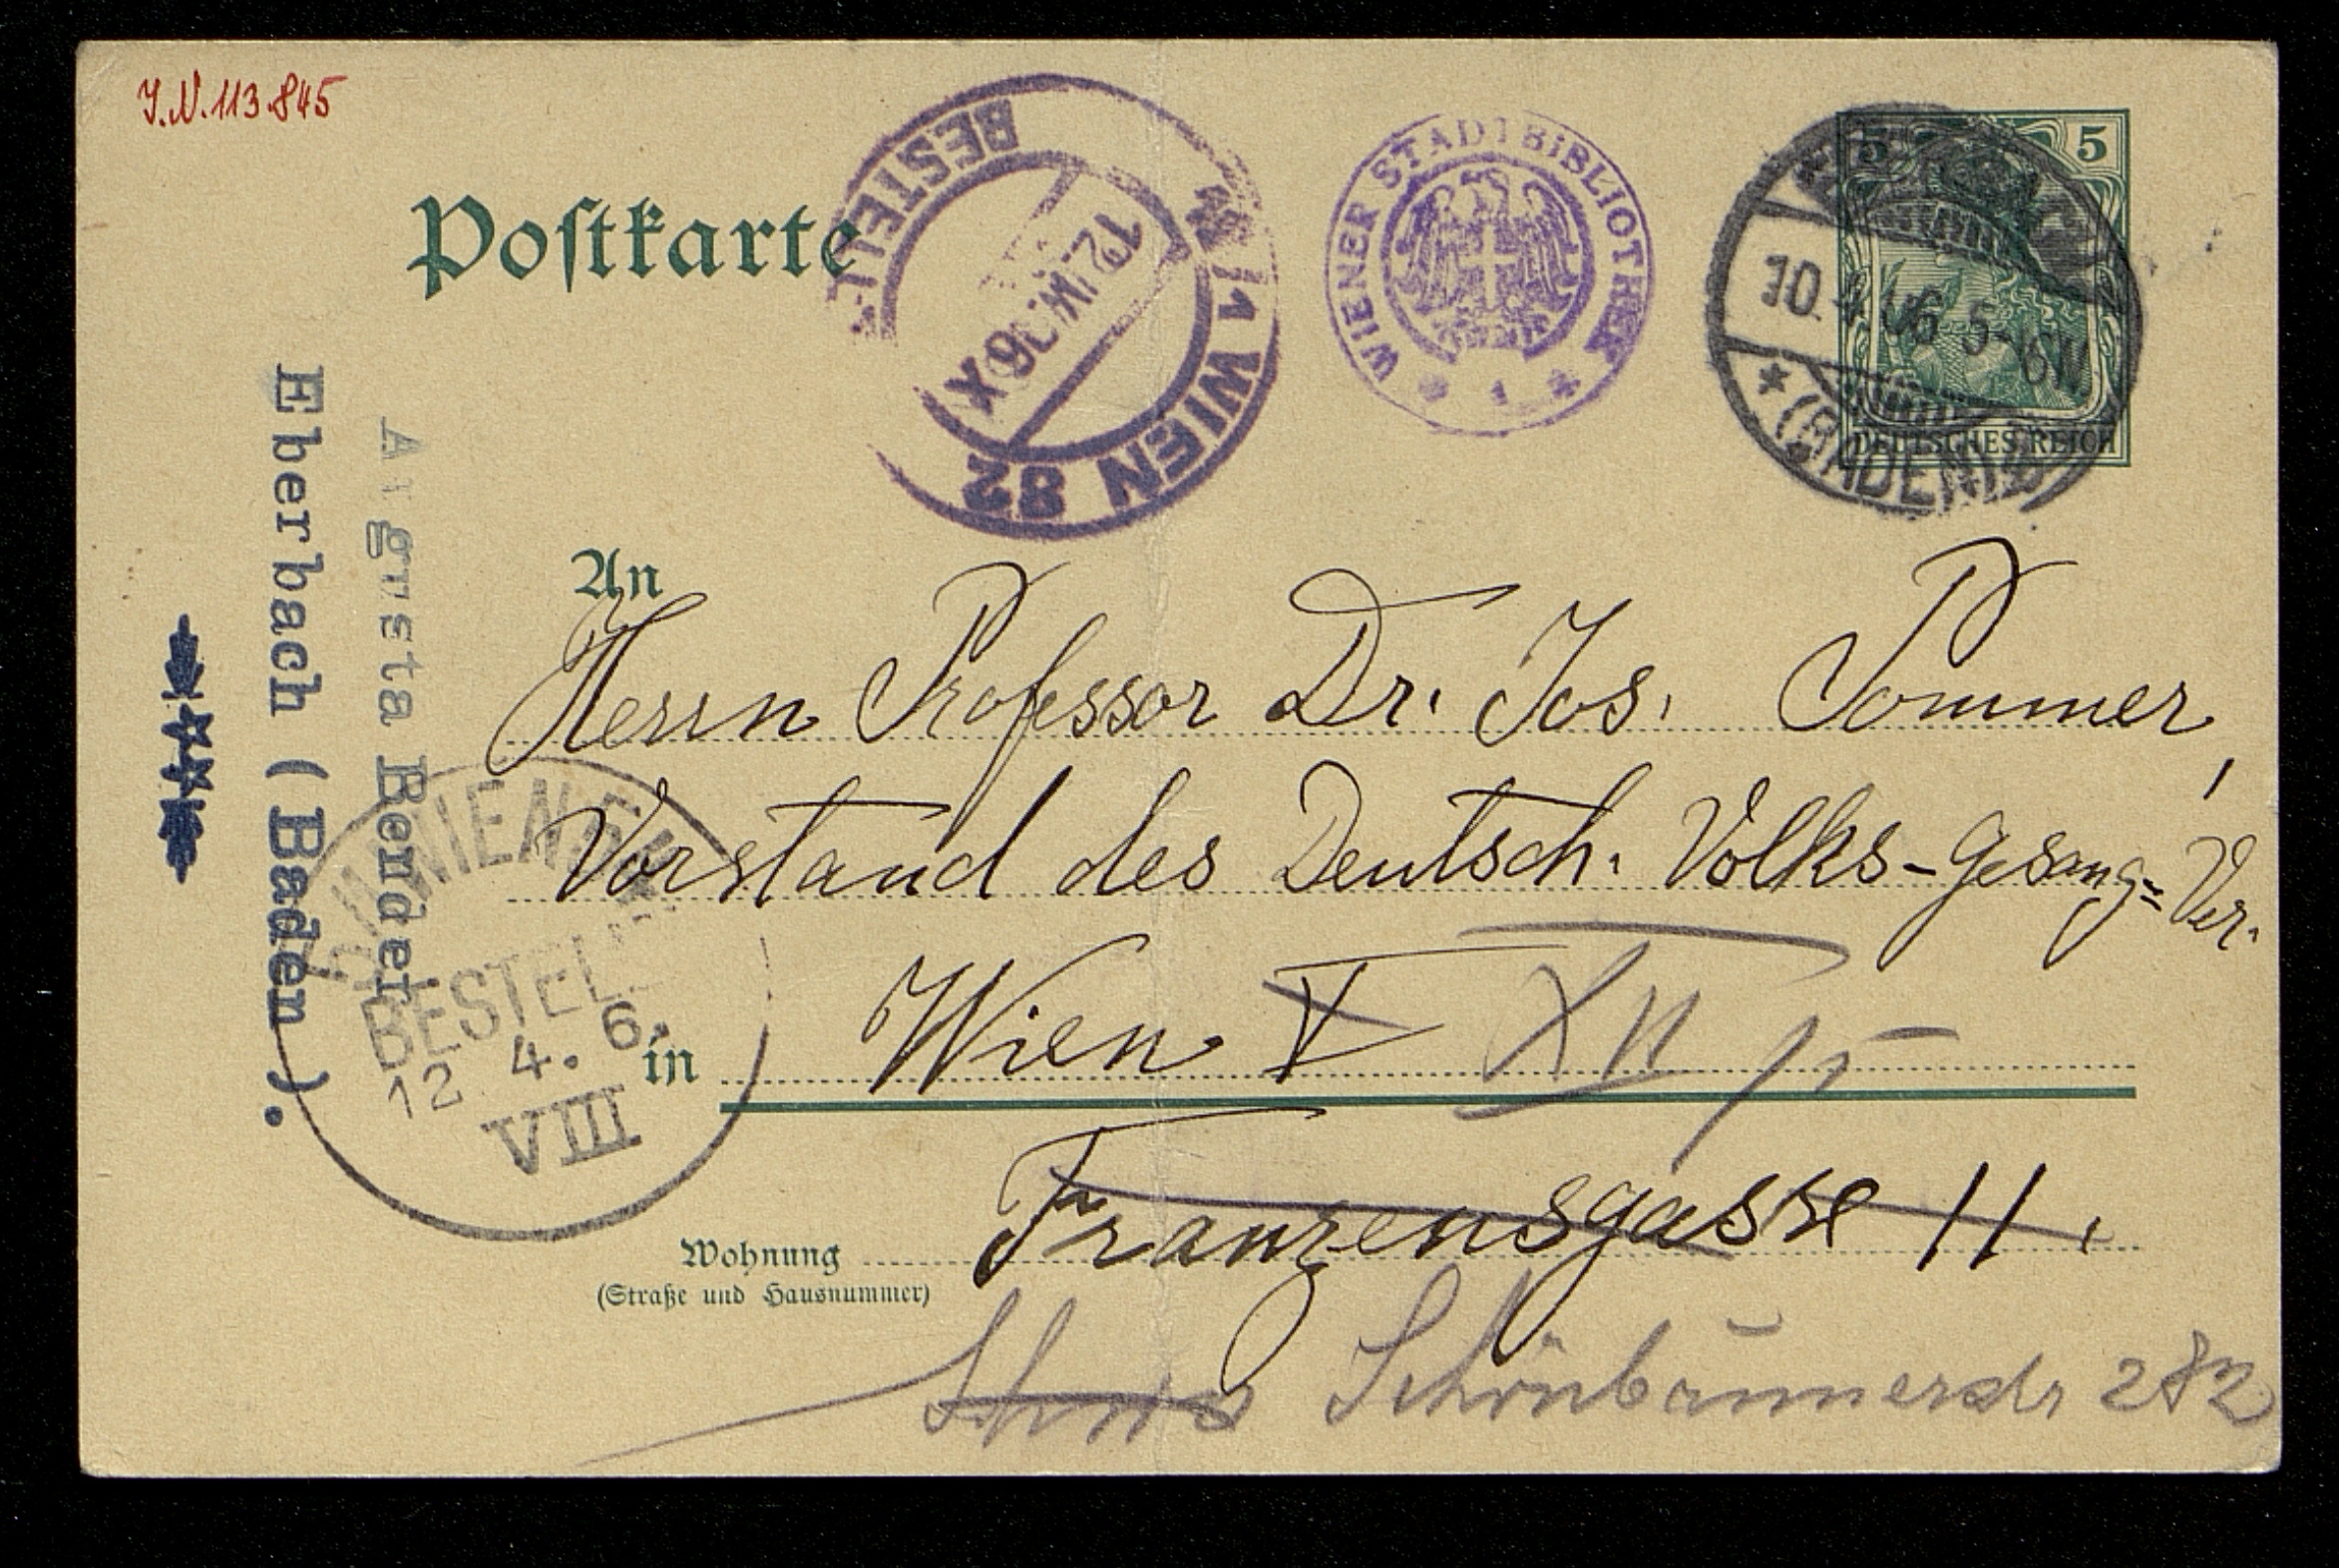 J.N. 113.845
Postkarte
BESTELLT
WIEN 82
12.IV.06 X
WIENER STADTBIBLIOTHEK
1
5 5
DEUTSCHES REICH
10.4.06 5-6N
* (BADEN)
Augusta Bender
Eberbach (Baden).
An
Herrn Professor Dr. Jos. Pommer,
Vorstand des Deutsch. Volks-Gesang-Ver.
in Wien V XII
Franzensgasse 11.
Wohnung
(Straße und Hausnummer)
Schönbrunnerstr 282
WIEN
BESTELLT
12 4. 6.
VIII